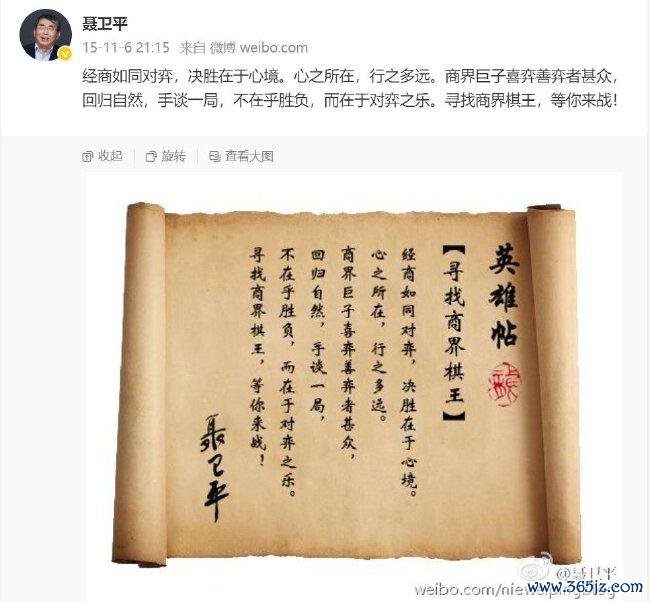 聂卫平
15-11-6 21:15 来自 微博 weibo.com
经商如同对弈，决胜在于心境。心之所在，行之多远。商界巨子喜弈善弈者甚众，
回归自然，手谈一局，不在乎胜负，而在于对弈之乐。寻找商界棋王，等你来战！
收起 旋转 查看大图
英雄帖
【寻找商界棋王】
经商如同对弈，决胜在于心境。
心之所在，行之多远。
商界巨子喜弈善弈者甚众，
回归自然，手谈一局，
不在乎胜负，而在于对弈之乐。
寻找商界棋王，等你来战！
聂卫平
@聂卫平
weibo.com/nieweipingblog
www.365jz.com